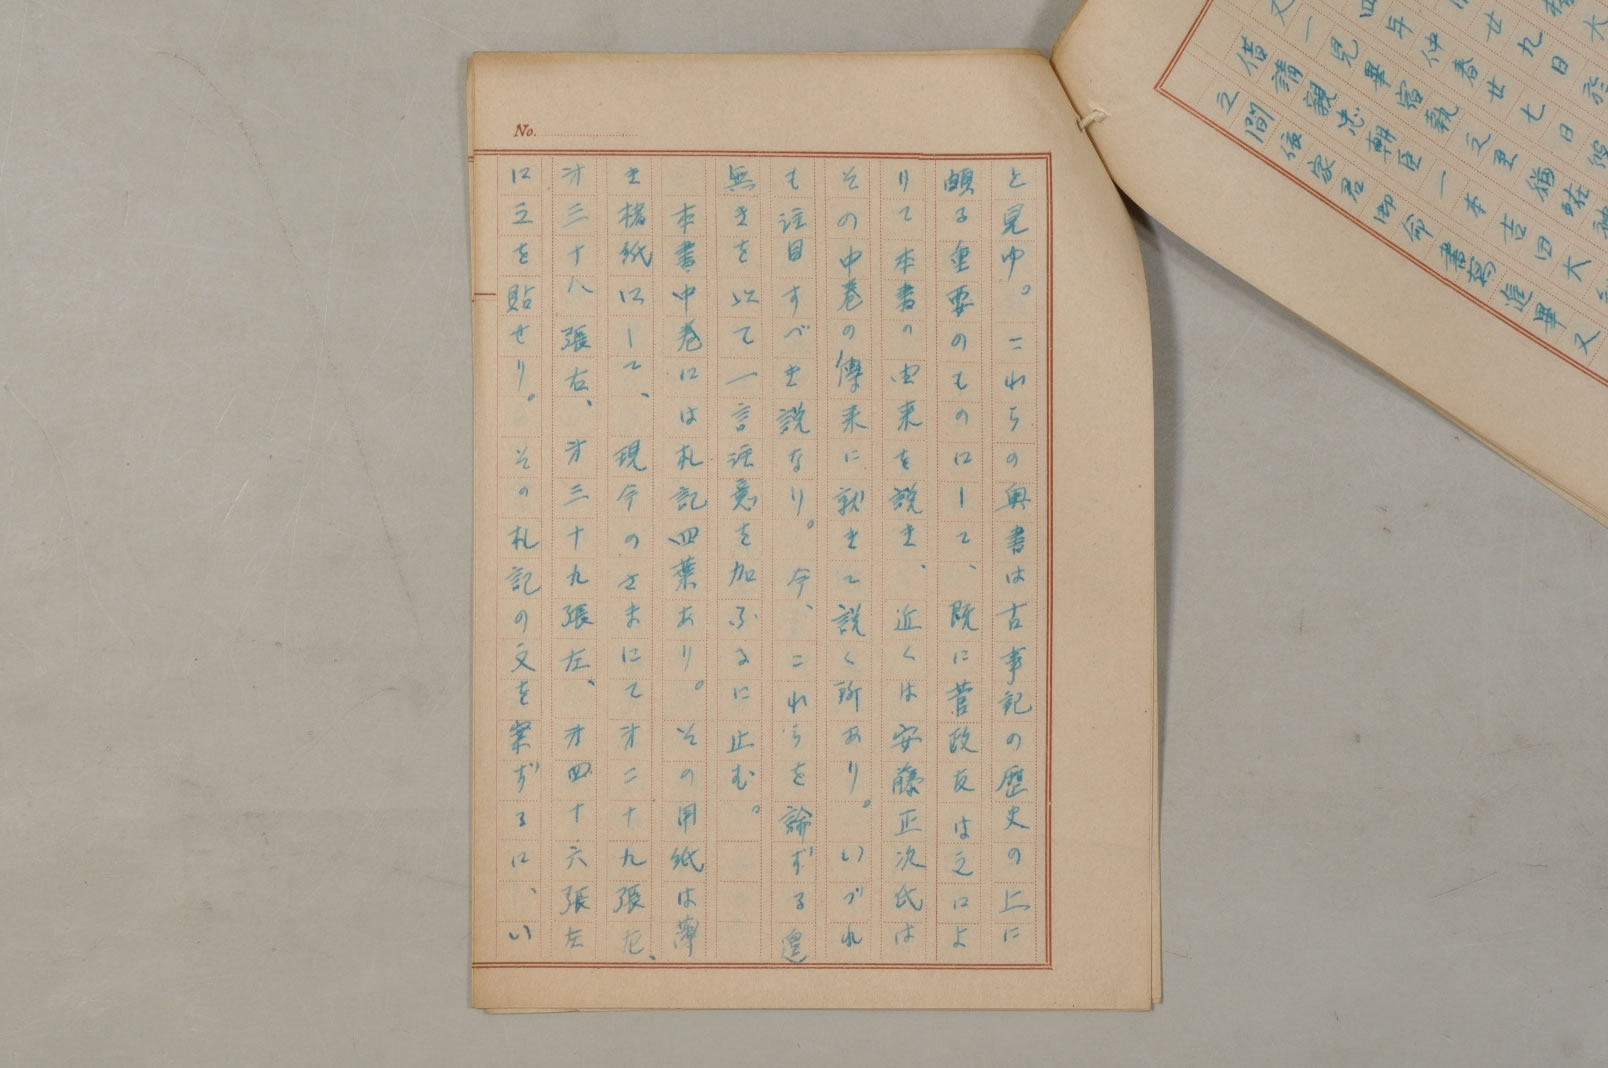 大
廿九日於
四年仲春廿七日
又一見畢宿執之至猶在神
借請親忠朝臣一本吉田大
之間依家君御命書寫進畢又
No.
と見ゆ。これらの奥書は古事記の歴史の上に
頗る重要のものにして、既に菅政友は之によ
りて本書の由来を説き、近くは安藤正次氏は
その中巻の傳来に就きて説く所あり。いづれ
も注目すべき説なり。今、これらを論ずる遑
無きを以て一言注意を加ふるに止む。
本書中巻には札記四葉あり。その用紙は薄
き楮紙にして、現今のさまにて才二十九張左、
才三十八張右、才三十九張左、才四十六張左
に之を貼せり。その札記の文を案ずるに、い